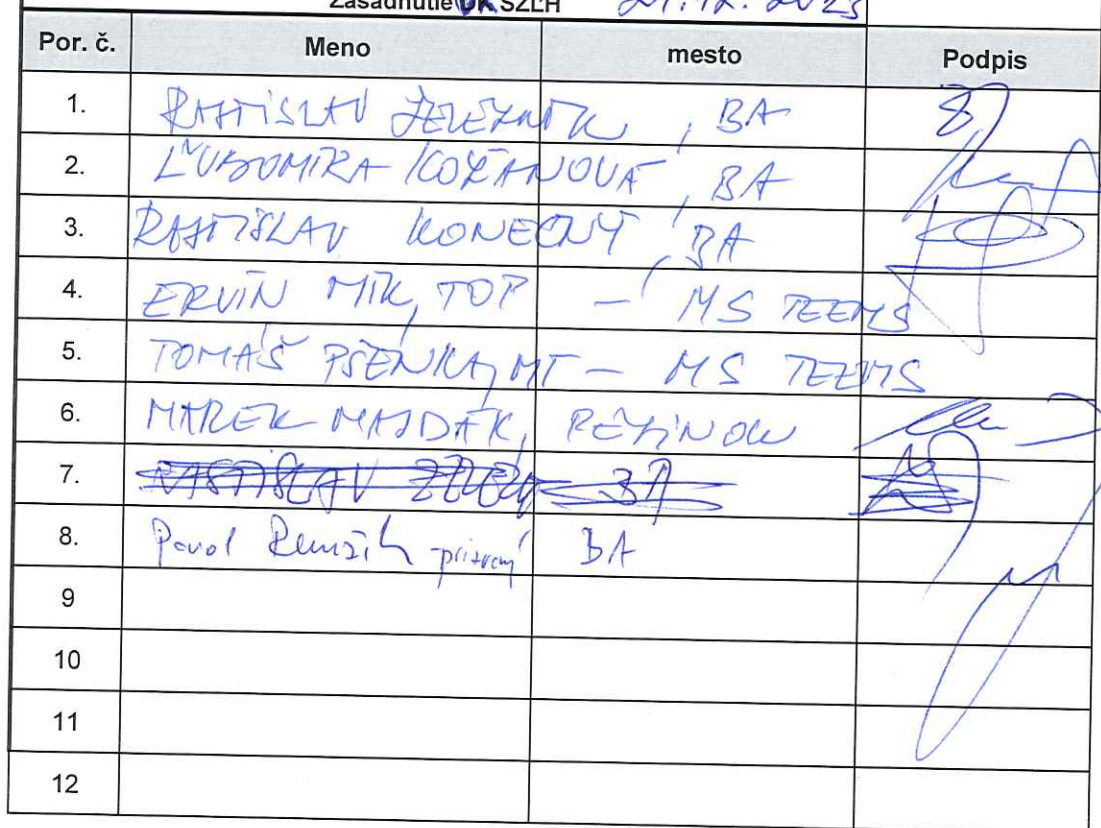 Zasadnutie DK SZĽH 21.12.2023
Por. č. Meno mesto Podpis
1. RASTISLAV ŽELEZNÍK, BA
2. ĽUBOMÍRA KOŽANOVÁ, BA
3. RASTISLAV KONEČNÝ, BA
4. ERVÍN MIK, TOP - MS TEEMS
5. TOMÁŠ PŠENKA, MT - MS TEEMS
6. MAREK MAJDÁK,
7. RASTISLAV BA
8. Pavol BA
9
10
11
12